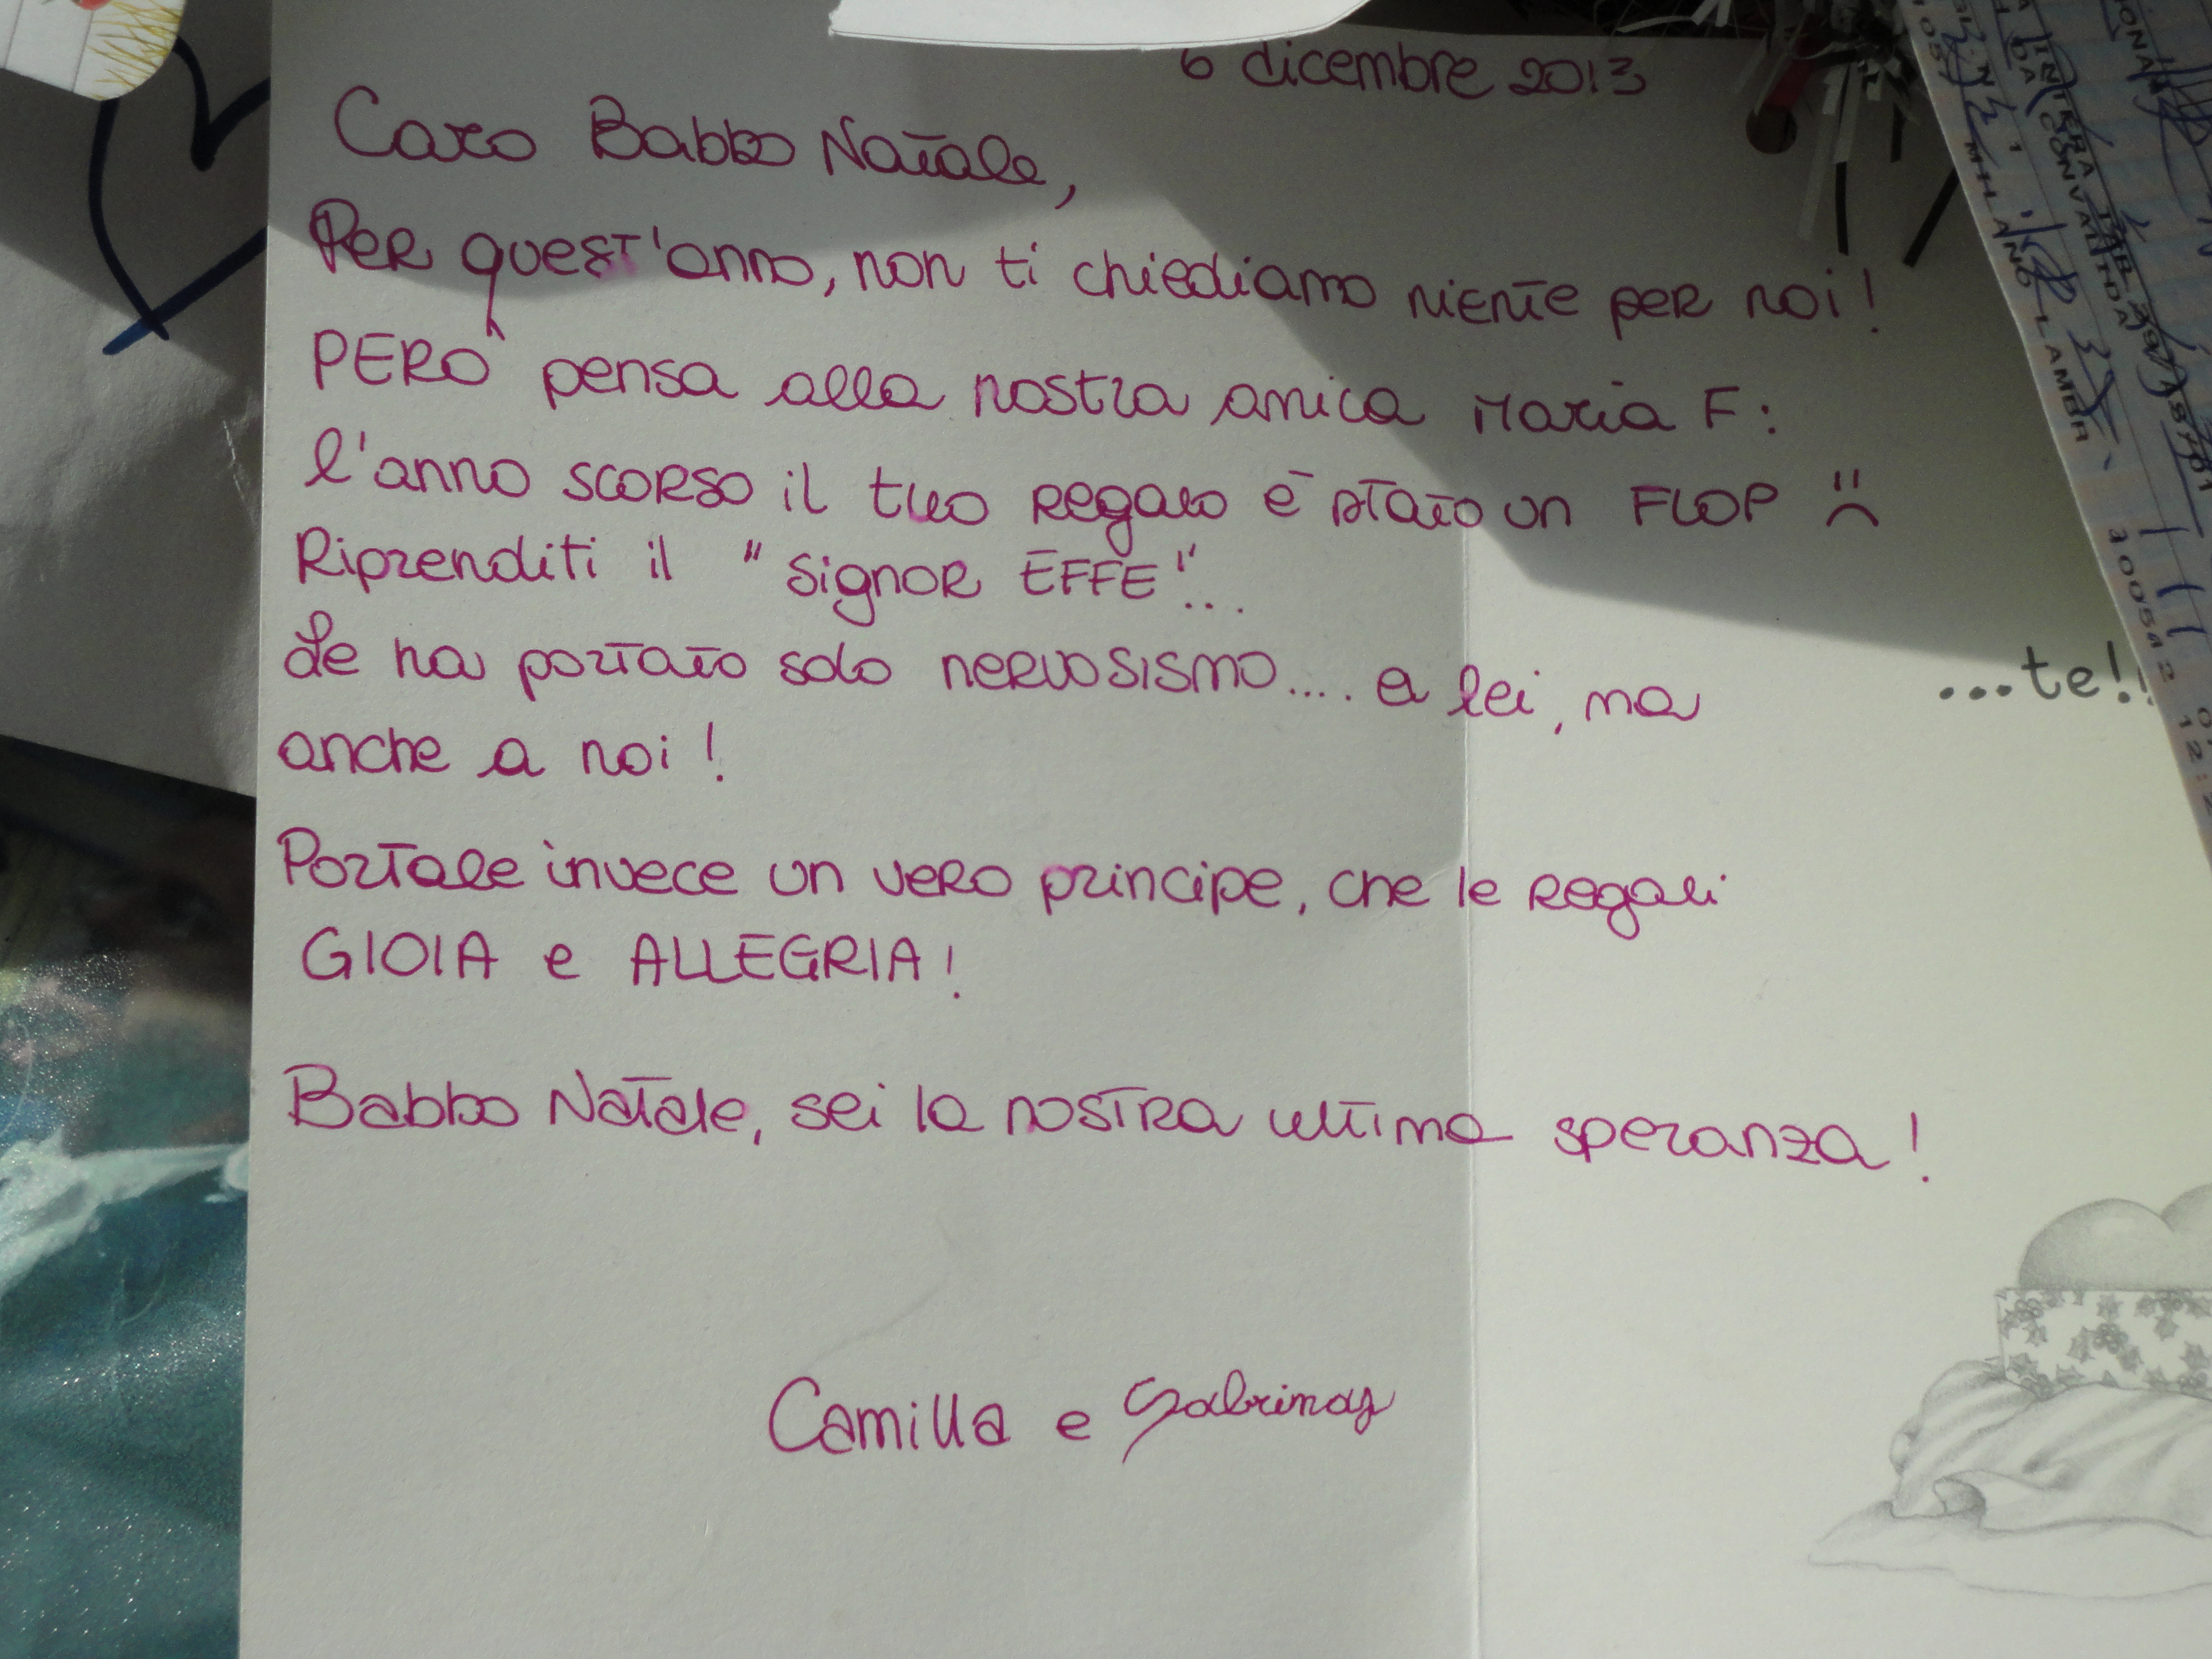 6 dicembre 2013
Caro Babbo Natale,
Per quest'anno, non ti chiediamo niente per noi!
PERO' pensa alla nostra amica Maria F:
l'anno scorso il tuo regalo è stato un FLOP :(
Riprenditi il "signor EFFE"...
Le ha portato solo nervosismo.... a lei, ma
anche a noi!
Portale invece un vero principe, che le regali
GIOIA e ALLEGRIA!
Babbo Natale, sei la nostra ultima speranza!
Camilla e Sabrina
...te!!